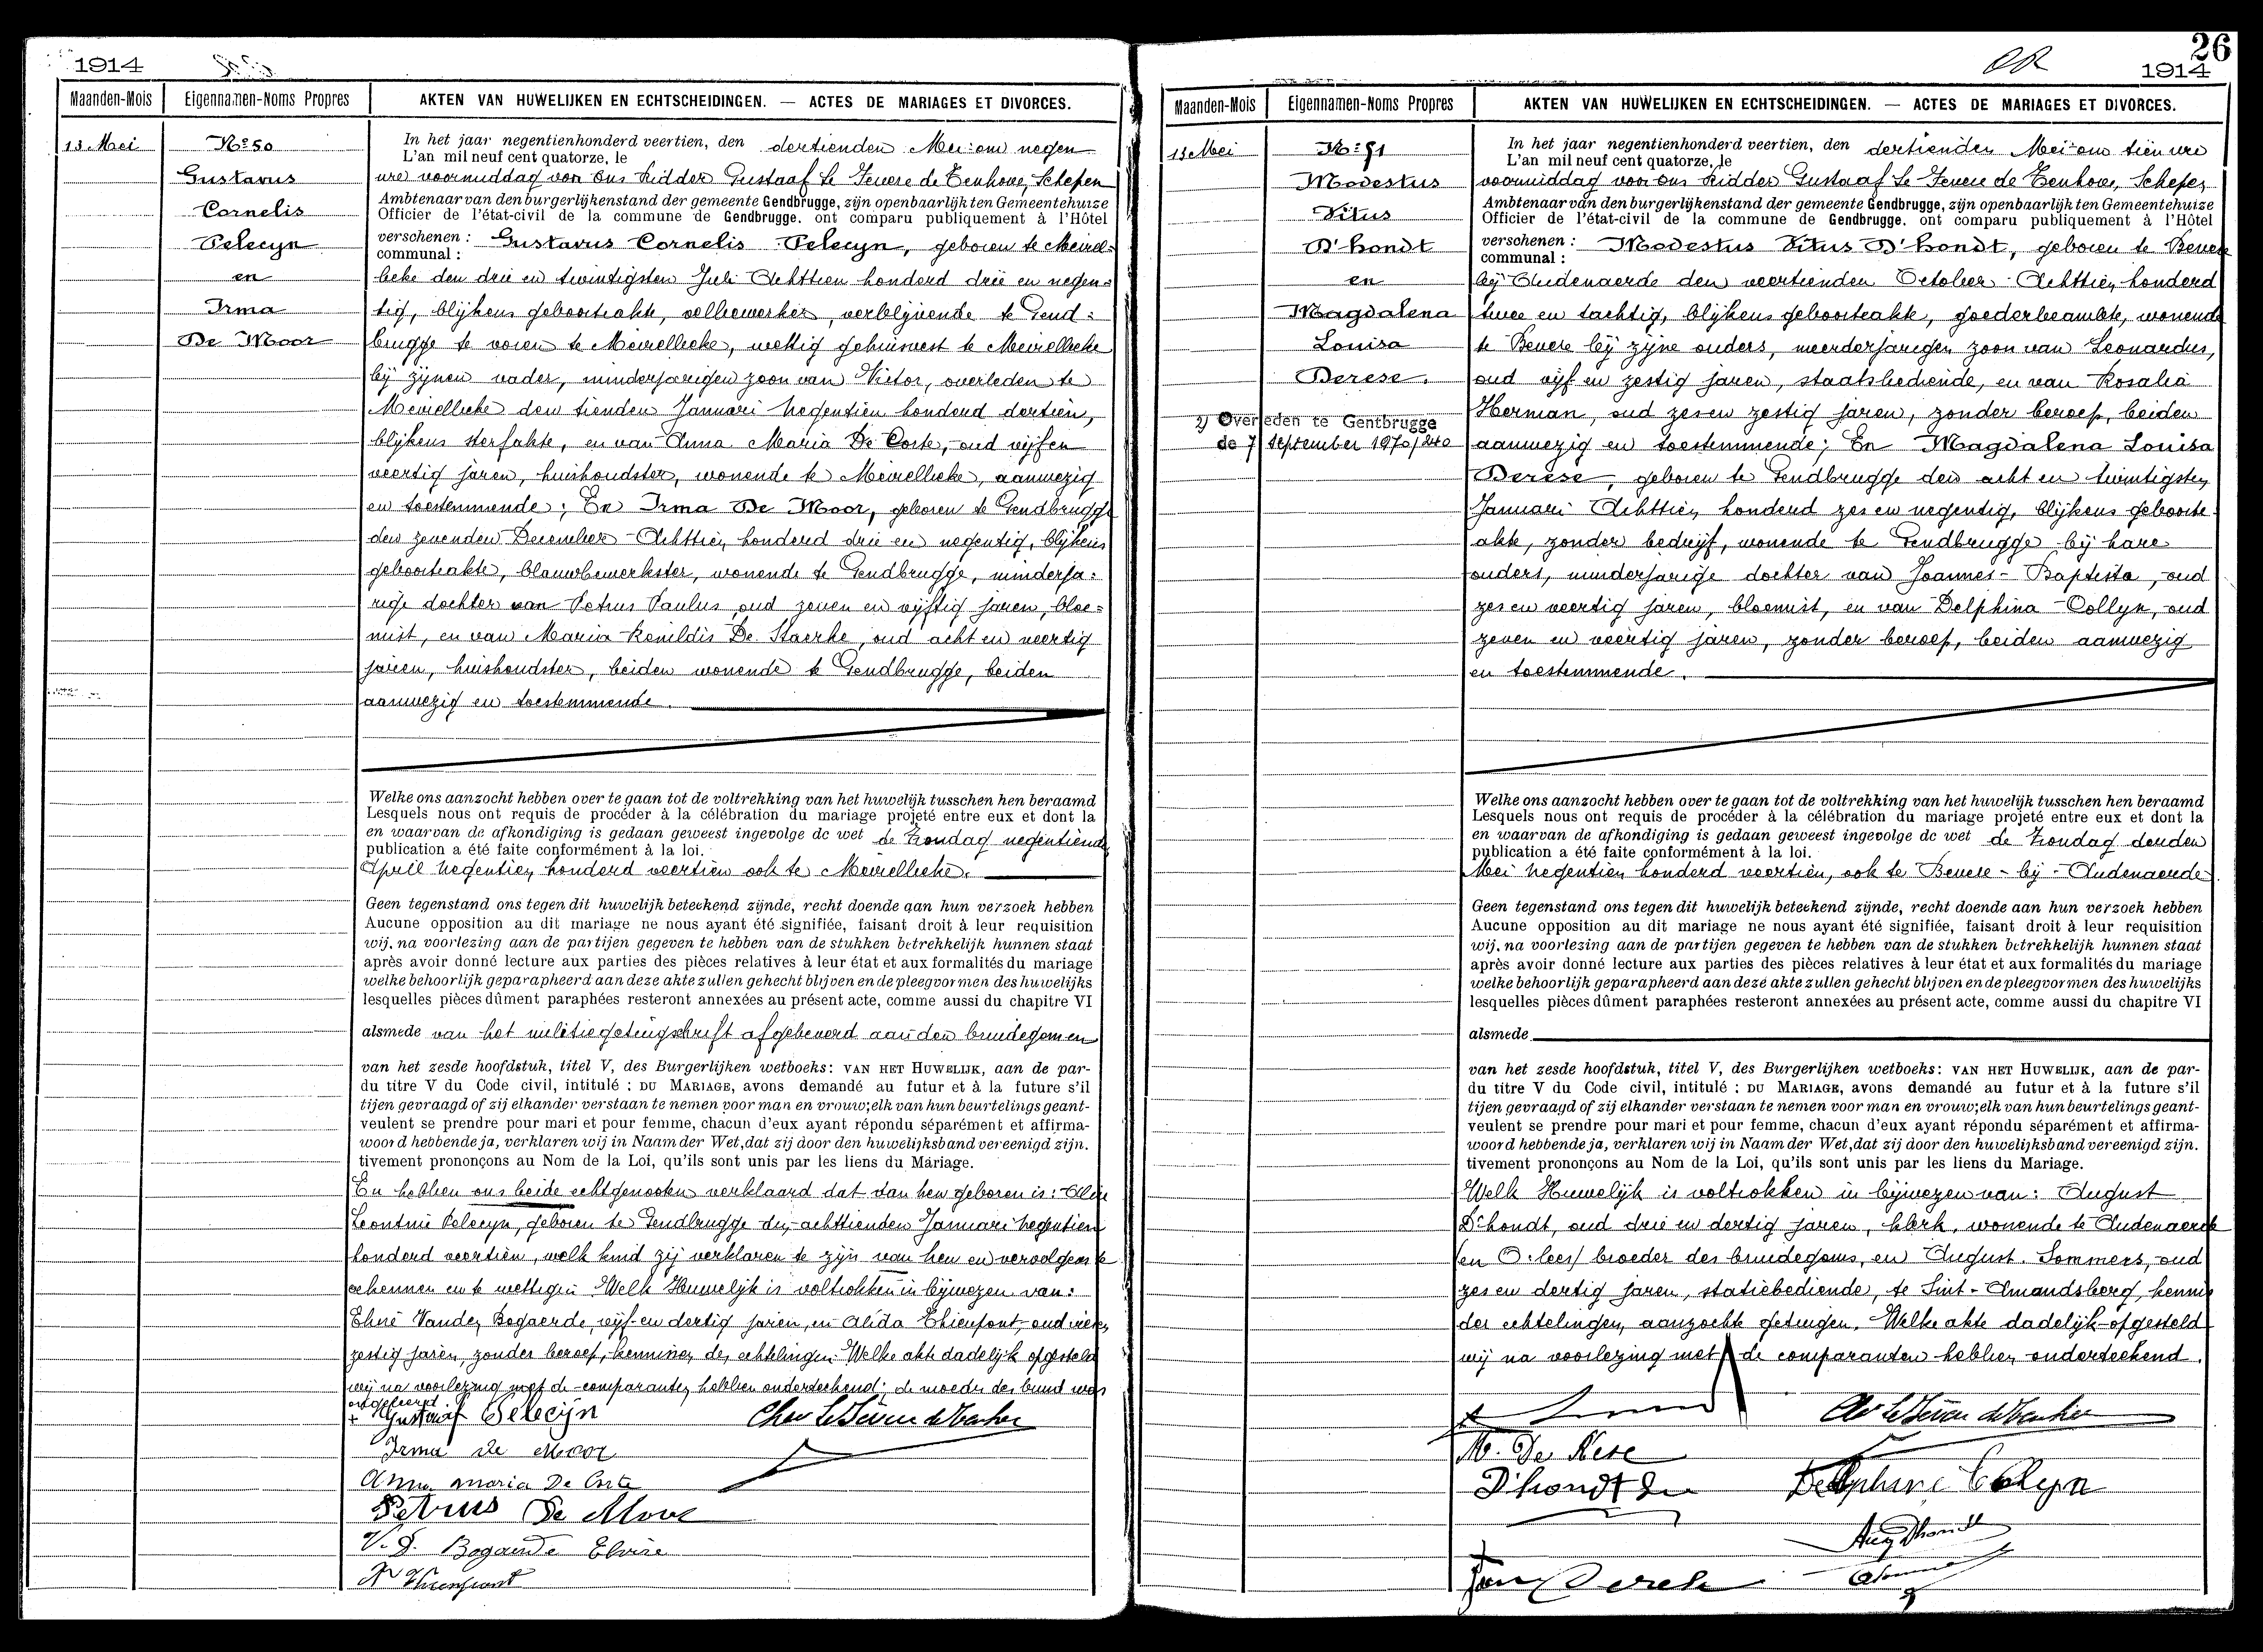 1914
Maanden-Mois Eigennamen-Noms Propres AKTEN VAN HUWELIJKEN EN ECHTSCHEIDINGEN. — ACTES DE MARIAGES ET DIVORCES.
13 Mei
No 50
Gustavus
Cornelis
Pelecyn
en
Irma
De Moor
In het jaar negentienhonderd veertien, den dertienden Mei om negen
L'an mil neuf cent quatorze, le
ure voormiddag voor ons Ridder Gustaaf le Fevere de Tenhove, Schepen
Ambtenaar van den burgerlijkenstand der gemeente Gendbrugge, zijn openbaarlijk ten Gemeentehuize
Officier de l'état-civil de la commune de Gendbrugge. ont comparu publiquement à l'Hôtel
verschenen : Gustavus Cornelis Pelecyn, geboren te Meirel-
communal :
beke den drie en twintigsten Juli Achttien honderd drie en negen-
tig, blijkens geboorteakte, velbewerker, verblijvende te Gend-
brugge te voren te Meirelbeke, wettig gehuisvest te Meirelbeke
bij zijnen vader, minderjarigen zoon van Victor, overleden te
Meirelbeke den tienden Januari Negentien honderd dertien,
blijkens sterfakte, en van Anna Maria De Corte, oud vijf en
veertig jaren, huishoudster, wonende te Meirelbeke, aanwezig
en toestemmende; En Irma De Moor, geboren te Gendbrugge
den zevenden December Achttien honderd drie en negentig, blijkens
geboorteakte, blauwbewerkster, wonende te Gendbrugge, minderja-
rige dochter van Petrus Paulus oud zeven en vijftig jaren, bloe-
mist, en van Maria Renildis De Staerke, oud acht en veertig
jaren, huishoudster, beiden wonende te Gendbrugge, beiden
aanwezig en toestemmende.
Welke ons aanzocht hebben over te gaan tot de voltrekking van het huwelijk tusschen hen beraamd
Lesquels nous ont requis de procéder à la célébration du mariage projeté entre eux et dont la
en waarvan de afkondiging is gedaan geweest ingevolge de wet de Zondag negentiende
publication a été faite conformément à la loi.
April Negentien honderd veertien ook te Meirelbeke.
Geen tegenstand ons tegen dit huwelijk beteekend zijnde, recht doende aan hun verzoek hebben
Aucune opposition au dit mariage ne nous ayant été signifiée, faisant droit à leur requisition
wij, na voorlezing aan de partijen gegeven te hebben van de stukken betrekkelijk hunnen staat
après avoir donné lecture aux parties des pièces relatives à leur état et aux formalités du mariage
welke behoorlijk geparapheerd aan deze akte zullen gehecht blijven en de pleegvormen des huwelijks
lesquelles pièces dûment paraphées resteront annexées au présent acte, comme aussi du chapitre VI
alsmede van het militiegetuigschrift afgeleverd aan den bruidegom en
van het zesde hoofdstuk, titel V, des Burgerlijken wetboeks: VAN HET HUWELIJK, aan de par-
du titre V du Code civil, intitulé : DU MARIAGE, avons demandé au futur et à la future s'il
tijen gevraagd of zij elkander verstaan te nemen voor man en vrouw; elk van hun beurtelings geant-
veulent se prendre pour mari et pour femme, chacun d'eux ayant répondu séparément et affirma-
woord hebbende ja, verklaren wij in Naam der Wet, dat zij door den huwelijksband vereenigd zijn.
tivement prononçons au Nom de la Loi, qu'ils sont unis par les liens du Mariage.
En hebben ons beide echtgenooten verklaard dat van hen geboren is:
Leontine Pelecyn, geboren te Gendbrugge den achttienden Januari Negentien
honderd veertien, welk kind zij verklaren te zijn van hen en vervolgens te
erkennen en te wettigen. Welk Huwelijk is voltrokken in bijwezen van:
Vanden Bogaerde, vijf en dertig jaren, en Alida Thienpont, oud vier en
zestig jaren, zonder beroep, kennissen der echtelingen. Welke akte dadelijk opgesteld
wij na voorlezing met de comparanten hebben onderteekend; de moeder der bruid was
ongeleerd
Gustaaf Pelecijn
Irma de Moor
Anna Maria De Corte
Petrus De Moor
V. D. Bogaerde Elvire
26
1914
Maanden-Mois Eigennamen-Noms Propres AKTEN VAN HUWELIJKEN EN ECHTSCHEIDINGEN. — ACTES DE MARIAGES ET DIVORCES.
13 Mei
No 51
Modestus
Vitus
D'hondt
en
Magdalena
Louisa
Derese.
2) Overleden te Gentbrugge
de 7 September 1970/240
In het jaar negentienhonderd veertien, den dertienden Mei om tien ure
L'an mil neuf cent quatorze, le
voormiddag voor ons Ridder Gustaaf le Fevere de Tenhove, Schepen
Ambtenaar van den burgerlijkenstand der gemeente Gendbrugge, zijn openbaarlijk ten Gemeentehuize
Officier de l'état-civil de la commune de Gendbrugge. ont comparu publiquement à l'Hôtel
verschenen : Modestus Vitus D'hondt, geboren te Bevere
communal :
bij Audenaerde den veertienden October Achttien honderd
twee en tachtig, blijkens geboorteakte, goederbeambte, wonende
te Bevere bij zijne ouders, meerderjarigen zoon van Leonardus,
oud vijf en zestig jaren, staatsbediende, en van Rosalia
Herman, oud zes en zestig jaren, zonder beroep, beiden
aanwezig en toestemmende; En Magdalena Louisa
Derese, geboren te Gendbrugge den acht en twintigsten
Januari Achttien honderd zes en negentig, blijkens geboorte-
akte, zonder bedrijf, wonende te Gendbrugge bij hare
ouders, minderjarige dochter van Joannes-Baptista, oud
zes en veertig jaren, bloemist, en van Delphina Collyn, oud
zeven en veertig jaren, zonder beroep, beiden aanwezig
en toestemmende.
Welke ons aanzocht hebben over te gaan tot de voltrekking van het huwelijk tusschen hen beraamd
Lesquels nous ont requis de procéder à la célébration du mariage projeté entre eux et dont la
en waarvan de afkondiging is gedaan geweest ingevolge de wet de Zondag derden
publication a été faite conformément à la loi.
Mei Negentien honderd veertien, ook te Bevere-bij-Audenaerde
Geen tegenstand ons tegen dit huwelijk beteekend zijnde, recht doende aan hun verzoek hebben
Aucune opposition au dit mariage ne nous ayant été signifiée, faisant droit à leur requisition
wij, na voorlezing aan de partijen gegeven te hebben van de stukken betrekkelijk hunnen staat
après avoir donné lecture aux parties des pièces relatives à leur état et aux formalités du mariage
welke behoorlijk geparapheerd aan deze akte zullen gehecht blijven en de pleegvormen des huwelijks
lesquelles pièces dûment paraphées resteront annexées au présent acte, comme aussi du chapitre VI
alsmede
van het zesde hoofdstuk, titel V, des Burgerlijken wetboeks: VAN HET HUWELIJK, aan de par-
du titre V du Code civil, intitulé : DU MARIAGE, avons demandé au futur et à la future s'il
tijen gevraagd of zij elkander verstaan te nemen voor man en vrouw; elk van hun beurtelings geant-
veulent se prendre pour mari et pour femme, chacun d'eux ayant répondu séparément et affirma-
woord hebbende ja, verklaren wij in Naam der Wet, dat zij door den huwelijksband vereenigd zijn.
tivement prononçons au Nom de la Loi, qu'ils sont unis par les liens du Mariage.
Welk Huwelijk is voltrokken in bijwezen van: August
D'hondt, oud drie en dertig jaren, klerk, wonende te Audenaerde
broeder des bruidegoms, en August Sommers, oud
zes en dertig jaren, statiebediende, te Sint-Amandsberg, kennis
der echtelingen, aanzochte getuigen. Welke akte dadelijk opgesteld
wij na voorlezing met de comparanten hebben onderteekend.
D'hondt
Delphine Colleyn
Aug Dhondt